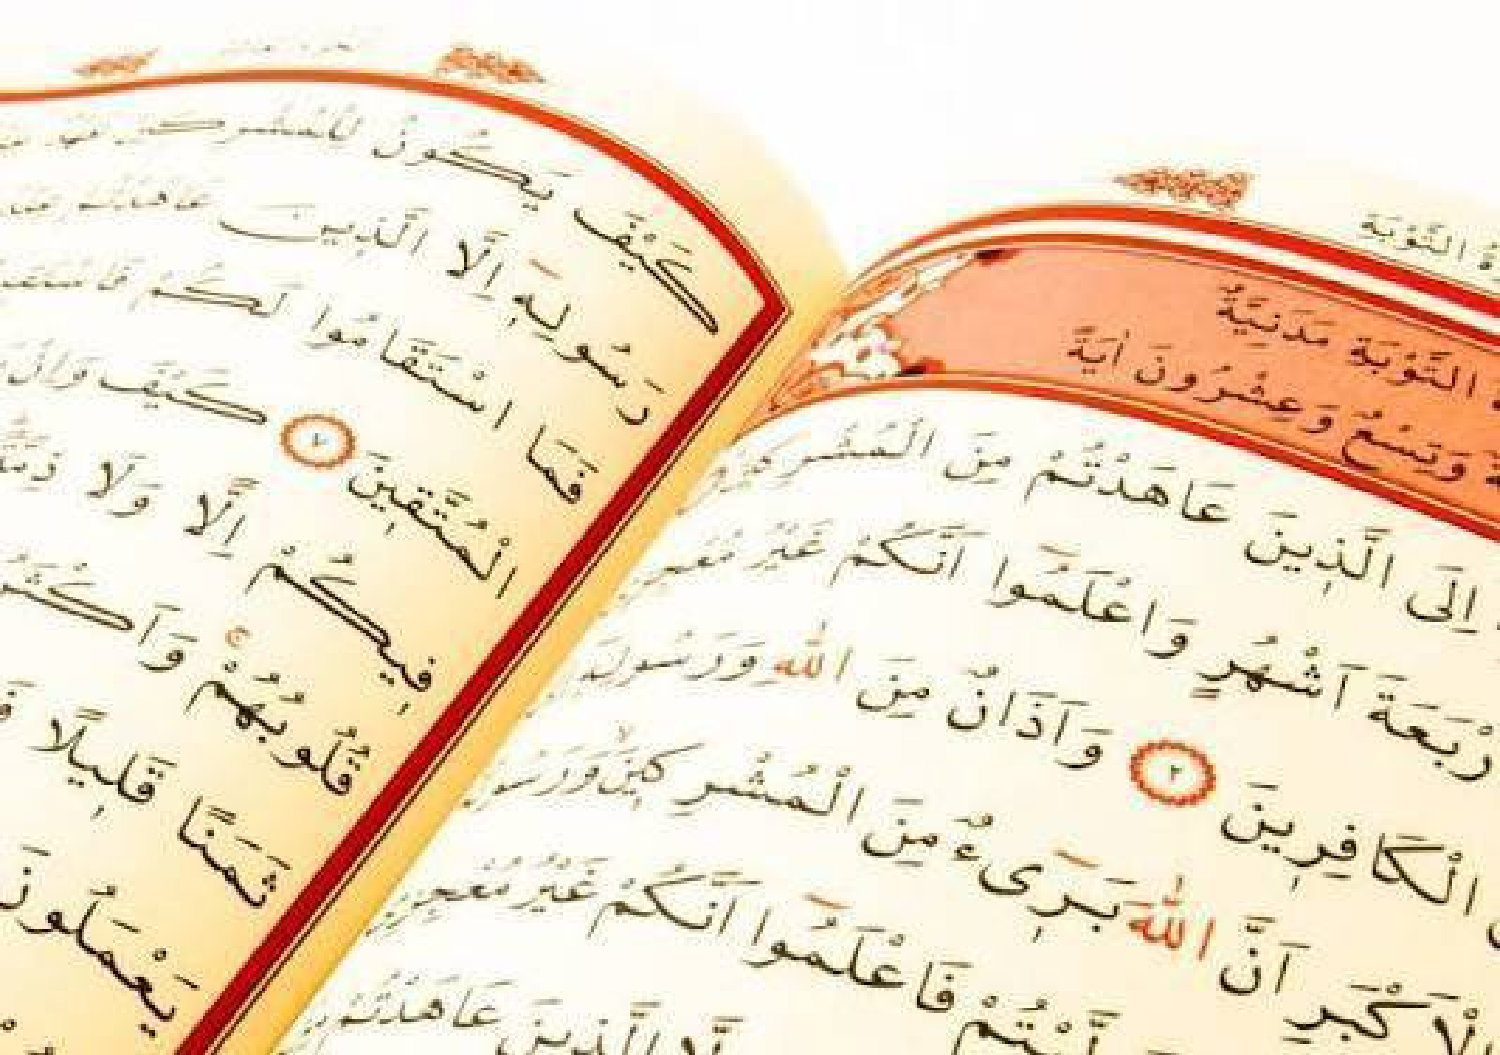 التَّوْبَةِ
التَّوْبَةِ مَدَنِيَّةٌ
وَتِسْعٌ وَعِشْرُونَ اٰيَةً
اِلَى الَّذِينَ عَاهَدْتُمْ مِنَ الْمُشْرِكِينَ
اَشْهُرٍ وَاعْلَمُوا اَنَّكُمْ غَيْرُ
الْكَافِرِينَ ٢ وَاَذَانٌ مِنَ اللّٰهِ وَرَسُولِهِ
اَنَّ اللّٰهَ بَرِىءٌ مِنَ الْمُشْرِكِينَ وَرَسُولُهُ
فَاعْلَمُوا اَنَّكُمْ غَيْرُ مُعْجِزِى
الَّذِينَ عَاهَدْتُمْ
كَيْفَ يَكُونُ لِلْمُشْرِكِينَ
رَسُولِهِ اِلَّا الَّذِينَ عَاهَدْتُمْ
فَمَا اسْتَقَامُوا لَكُمْ
الْمُتَّقِينَ ٧ كَيْفَ وَاِنْ
فِيكُمْ اِلًّا وَلَا ذِمَّةً
قُلُوبُهُمْ
ثَمَنًا قَلِيلًا
يَعْمَلُونَ